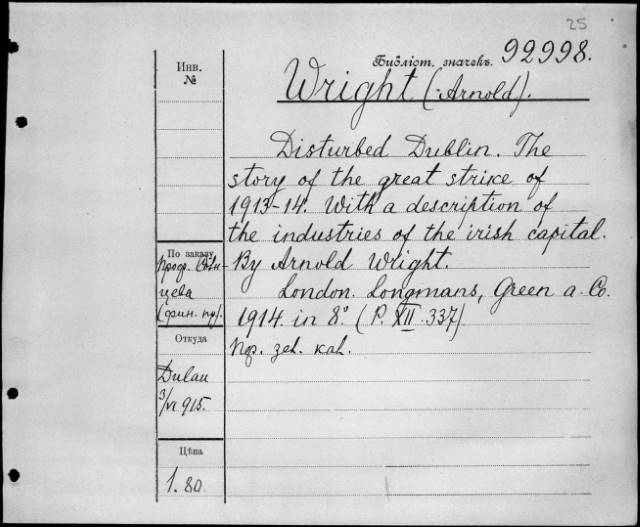 25
Библіот. значекъ. 92998.
Инв. №
Wright (Arnold).
Disturbed Dublin. The
story of the great strike of
1913-14. With a description of
the industries of the irish capital.
По заказу
проф.
By Arnold Wright.
цева
London. Longmans, Green a. Co.
(фин. пр).
1914. in 8°. (P. XII. 337).
Откуда
Пер. зел. кал.
Dulau
3/VI 915.
Цѣна
1.80